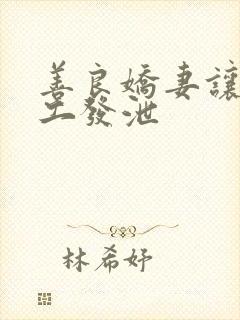 善良嬌妻讓
工發泄
林希妤